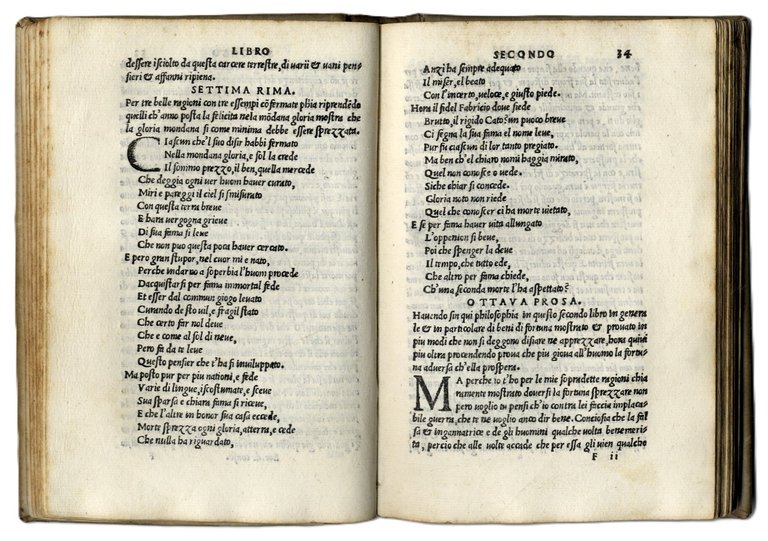 LIBRO
dessere isciolto da questa carcere terrestre, di varii & vani pen-
sieri & affanni ripiena.
SETTIMA RIMA.
Per tre belle ragioni con tre essempi cōfermate phia riprendēdo
quelli ch'anno posta la felicita nela mōdana gloria mostra che
la gloria mondana si come minima debbe essere sprezzata.
CIascun che'l suo disir habbi fermato
Nella mondana gloria, e sol la crede
Il sommo prezzo, il ben, quella mercede
Che deggia ogni uer huom hauer curato,
Miri e pareggi il ciel si smisurato
Con questa terra breue
E hara uergogna grieue
Di sua fama si leue
Che non puo questa poca hauer cercato.
E pero gran stupor, nel cuor mi e nato,
Perche indarno a soperbia l'huom procede
Dacquistarsi per fama immortal sede
Et esser dal commun giogo leuato
Curando desto uil, e fragil stato
Che certo fir nol deue
Che e come al sol di neue,
Pero sia da te leue
Questo pensier che t'ha si inuiluppato.
Ma posto pur per piu nationi, e sede
Varie di lingue, iscostumate, e sceue
Sua sparsa e chiara fama si riceue,
E che l'altre in honor sua casa eccede,
Morte sprezza ogni gloria, atterra, e cede
Che nulla ha riguardato,
SECONDO 34
Anzi ha sempre adequato
Il miser, el beato
Con l'incerto, ueloce, e giusto piede.
Hora il fidel Fabricio doue siede
Brutto, il rigido Cato? un puoco breue
Ci segna la sua fama el nome leue,
Pur fu ciascun di lor tanto pregiato.
Ma ben ch'el chiaro nomi haggia mirato,
Quel non conosce o uede.
Siche chiar si concede.
Gloria noto non riede
Quel che conoscer ci ha morte uietato,
E se per fama hauer uita allungato
L'oppenion si beue,
Poi che spenger la deue
Il tempo, che tutto ede,
Che altro per fama chiede,
Ch'una seconda morte l'ha aspettato?
OTTAVA PROSA.
Hauendo sin qui philosophia in questo secondo libro in genera
le & in particolare di beni di fortuna mostrato & prouato in
piu modi che non si deggono disiare ne apprezzare, hora quiui
piu oltra procendendo proua che piu gioua all'huomo la fortu-
na aduersa ch'ella prospera.
MA perche io t'ho per le mie sopradette ragioni chia
ramente mostrato douersi la fortuna sprezzare non
pero uoglio tu pensi ch'io contra lei faccia implaca-
bile guerra, che te ne uoglio anco dir bene. Conciosia che la fal
sa & ingannatrice e de gli huomini qualche uolta benemeri-
ta, percio che alle uolte accade che per essa gli uien qualche
F ii